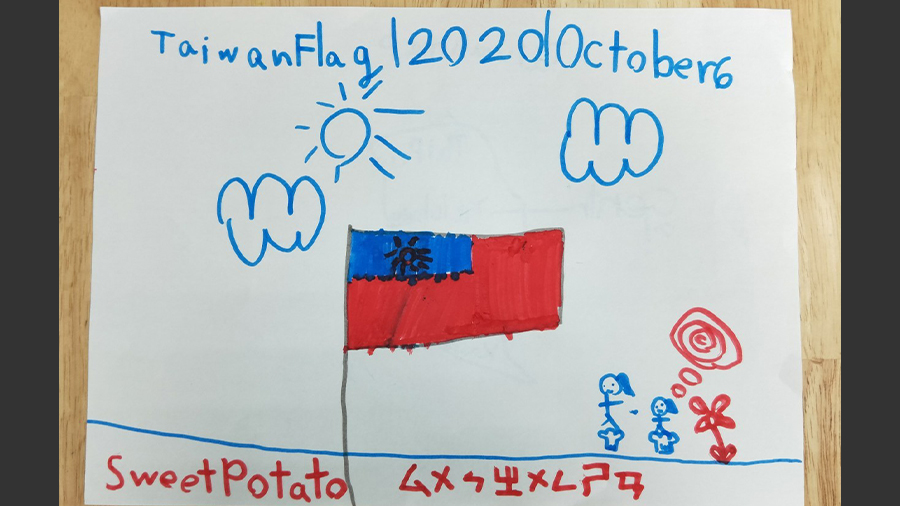 TaiwanFlag|2020|October6
SweetPotato ㄙㄨㄣㄓㄨㄥㄕㄢ